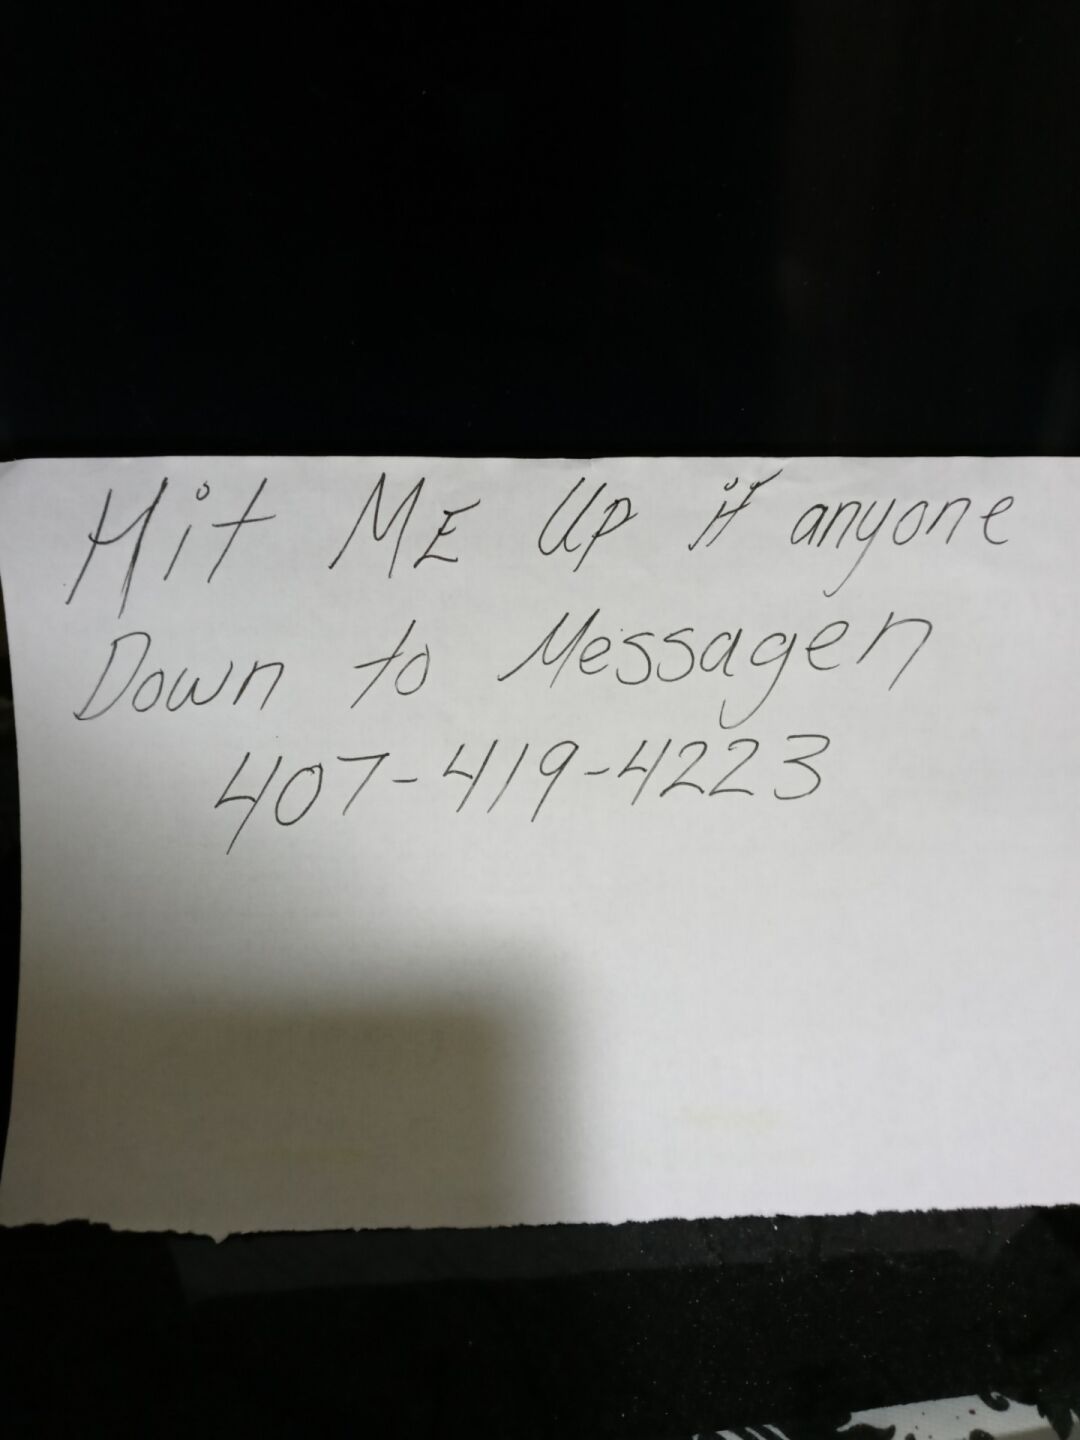 Hit ME Up if anyone
Down to Messagen
407-419-4223